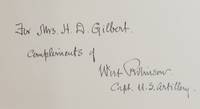 For Mrs. H. D. Gilbert.
Complements of
Wirt Robinson
Capt. U.S. Artillery.